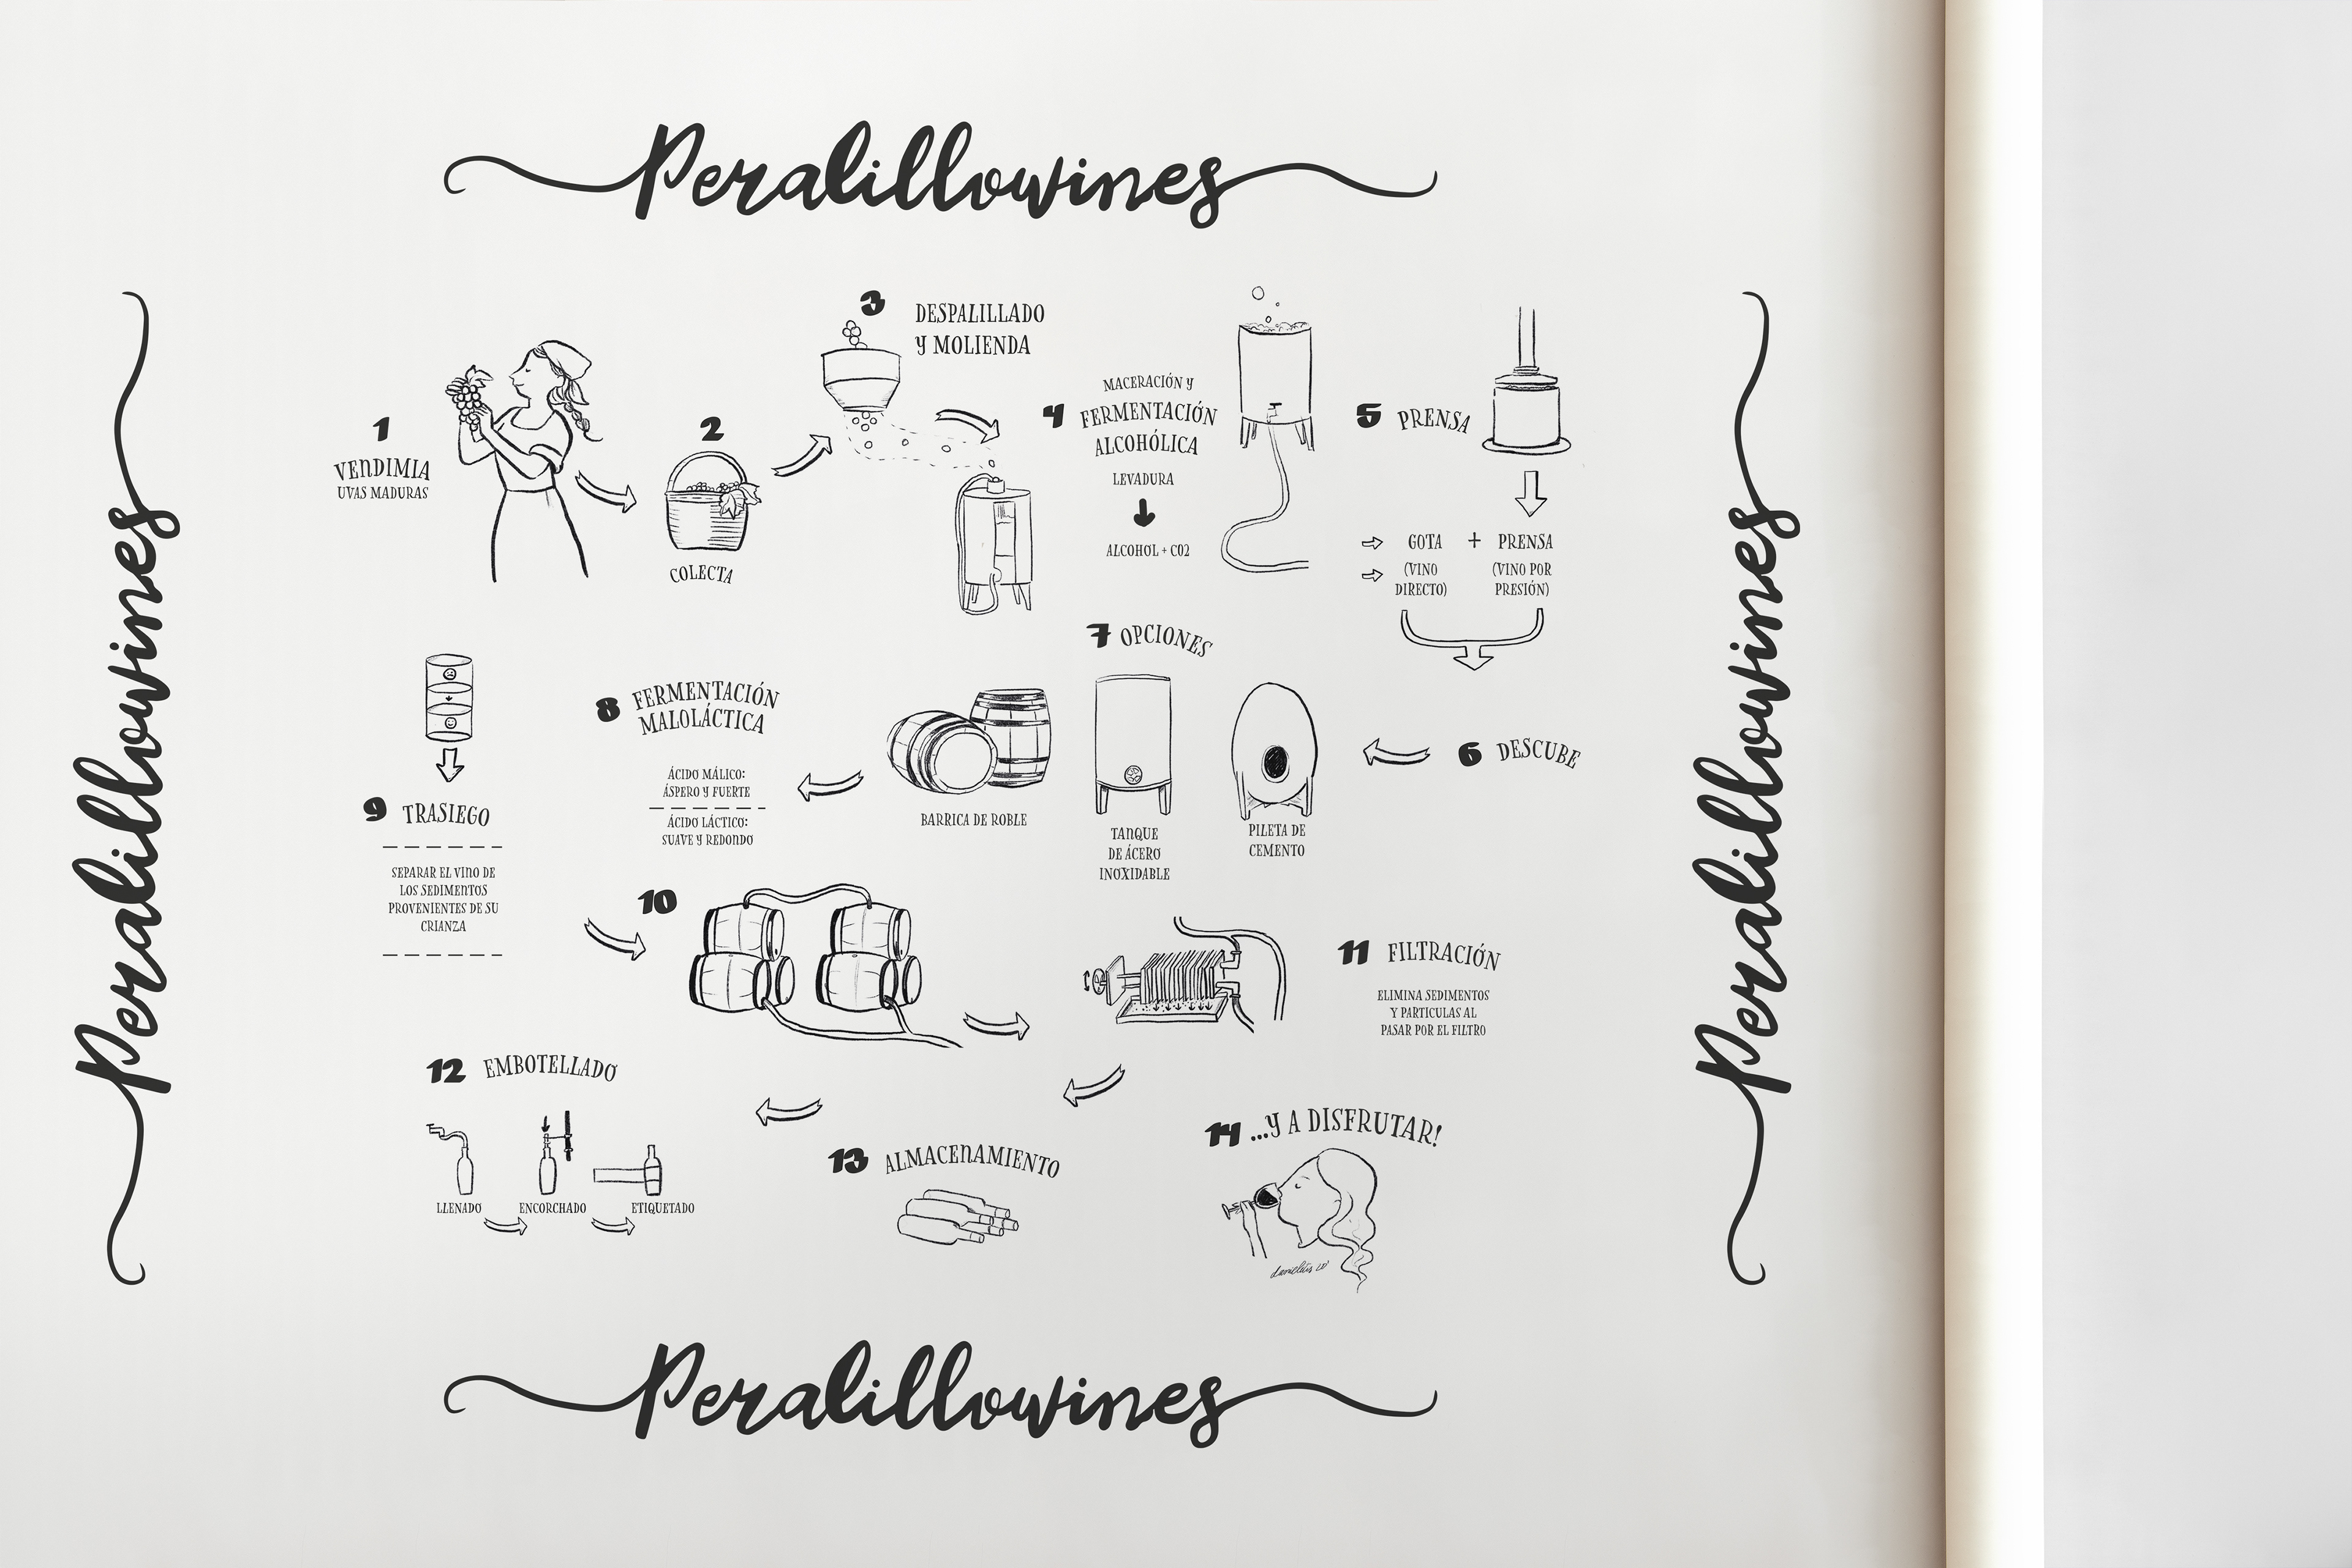 Peralillowines
Peralillowines
Peralillowines
1
VENDIMIA
UVAS MADURAS
2
COLECTA
3
DESPALILLADO
Y MOLIENDA
4
MACERACIÓN Y
FERMENTACIÓN
ALCOHÓLICA
LEVADURA
ALCOHOL + CO2
5 PRENSA
GOTA + PRENSA
(VINO
DIRECTO)
(VINO POR
PRESIÓN)
6 DESCUBE
7 OPCIONES
BARRICA DE ROBLE
TANQUE
DE ÁCERO
INOXIDABLE
PILETA DE
CEMENTO
8 FERMENTACIÓN
MALOLÁCTICA
ÁCIDO MÁLICO:
ÁSPERO Y FUERTE
ÁCIDO LÁCTICO:
SUAVE Y REDONDO
9 TRASIEGO
SEPARAR EL VINO DE
LOS SEDIMENTOS
PROVENIENTES DE SU
CRIANZA
10
11 FILTRACIÓN
ELIMINA SEDIMENTOS
Y PARTICULAS AL
PASAR POR EL FILTRO
12 EMBOTELLADO
LLENADO
ENCORCHADO
ETIQUETADO
13 ALMACENAMIENTO
14 ...Y A DISFRUTAR!
Peralillowines